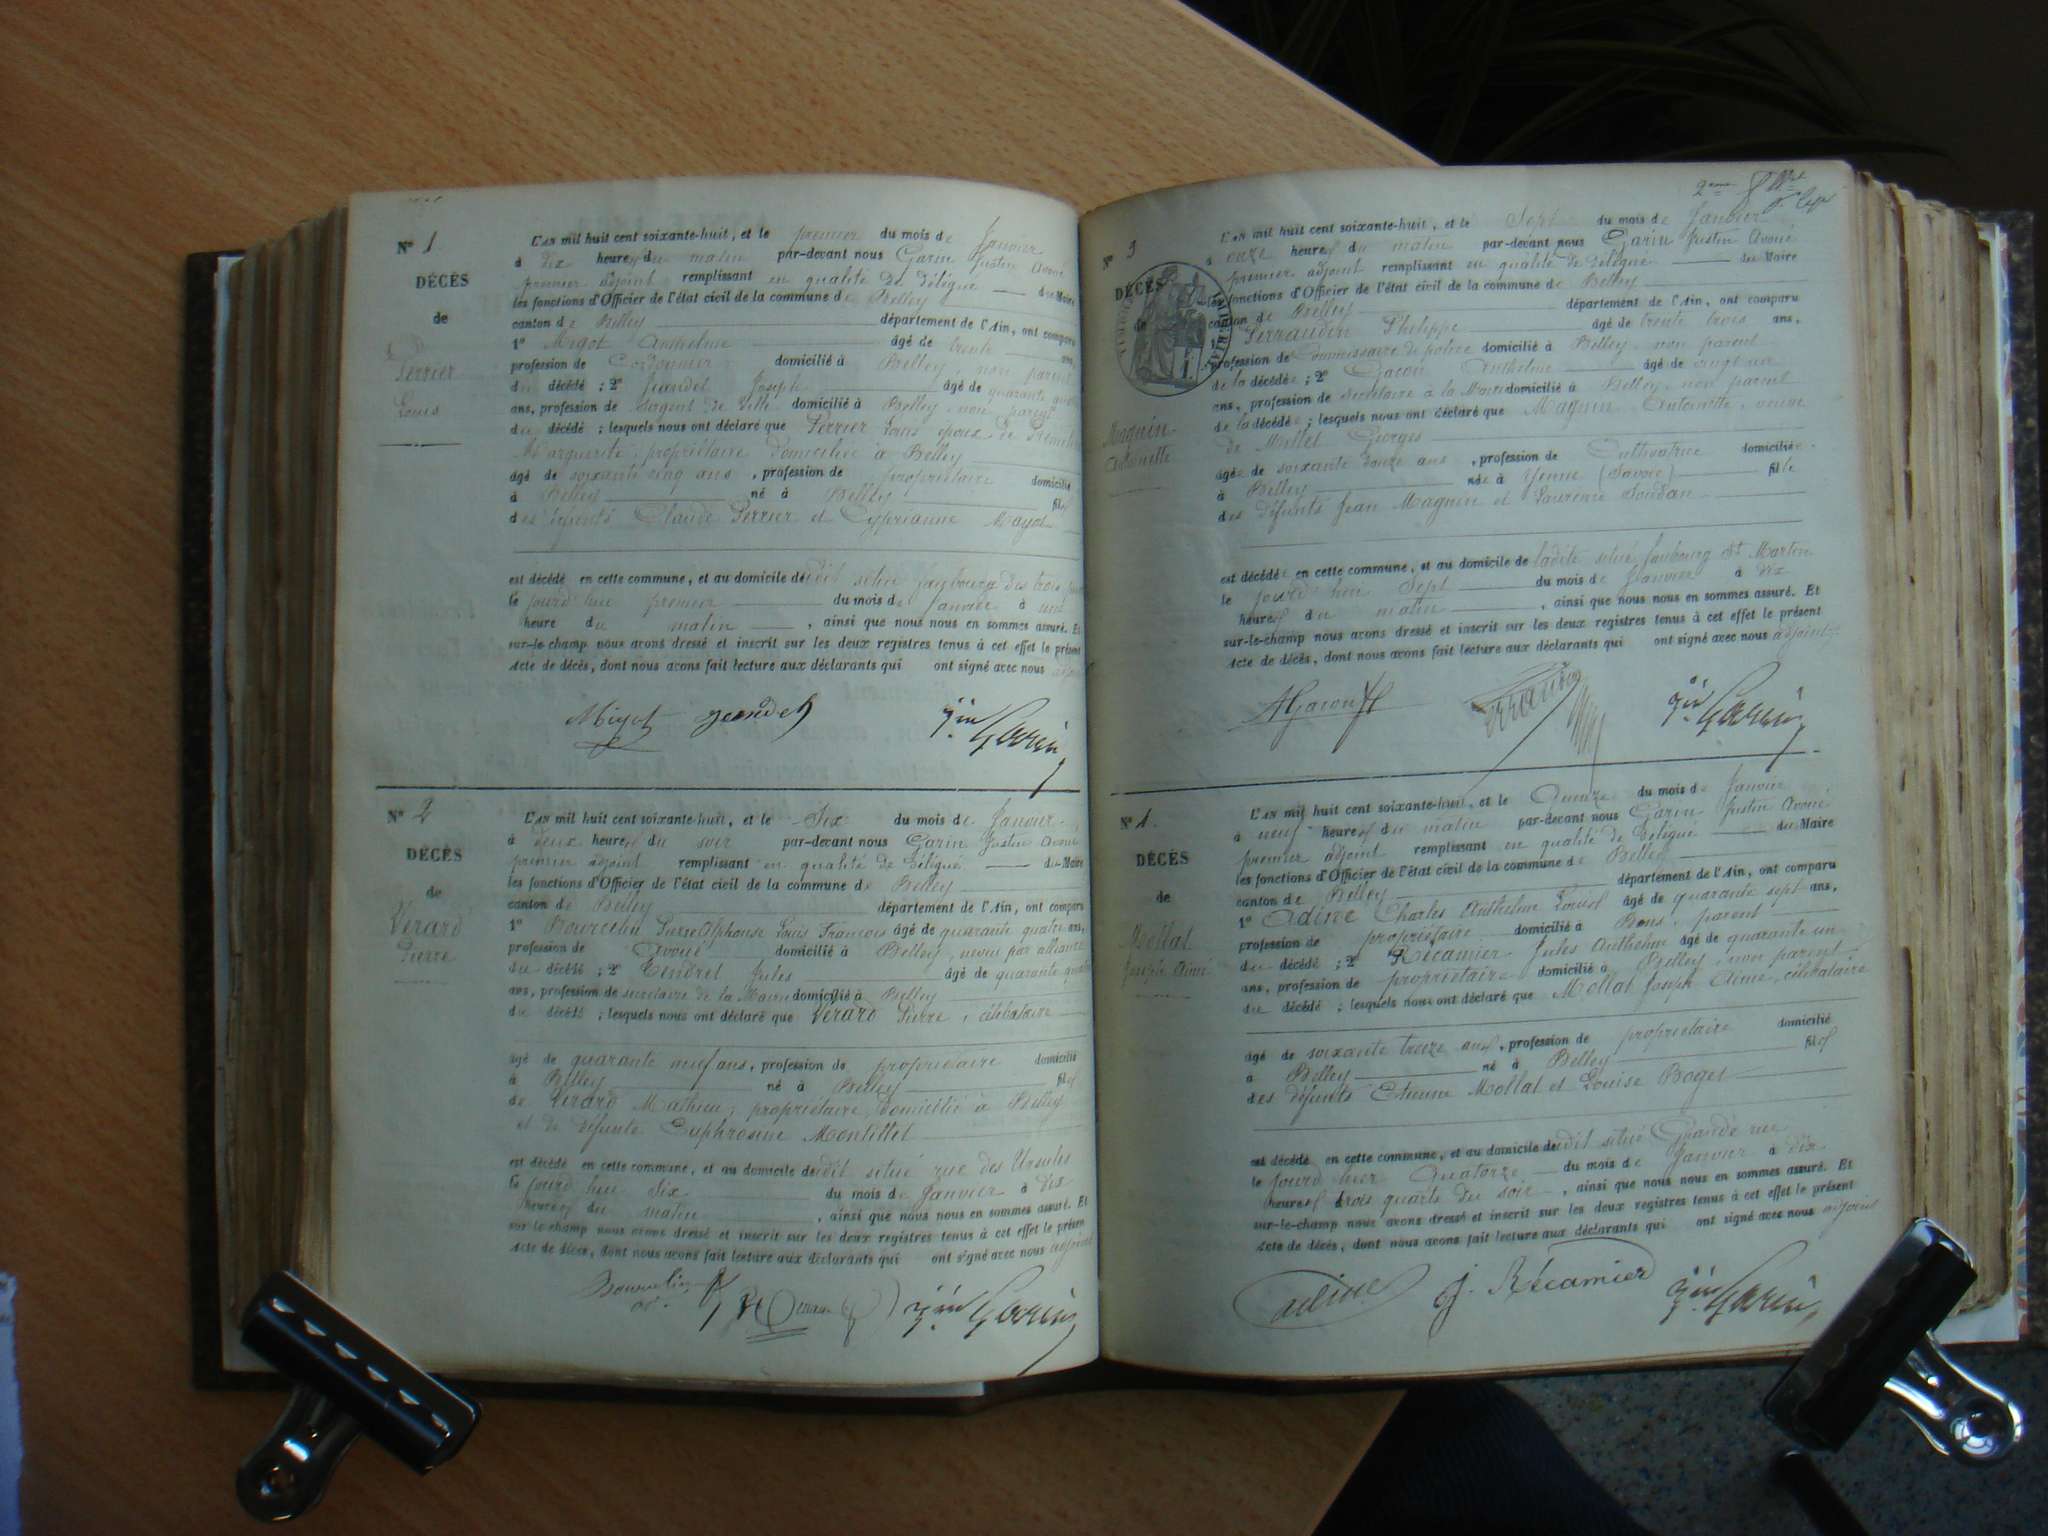 N° 1
DÉCÈS
de
Perrier
Louis
L'AN mil huit cent soixante-huit, et le premier du mois de Janvier
à dix heures du matin par-devant nous Garin Justin Avoué
premier adjoint remplissant en qualité de délégué du Maire
les fonctions d'Officier de l'état civil de la commune de Belley
canton de Belley département de l'Ain, ont comparu
1° Migot Anthelme âgé de trente ans,
profession de Cordonnier domicilié à Belley, non parent
du décédé ; 2° Jeandet Joseph âgé de quarante
ans, profession de Sergent de Ville domicilié à Belley, non parent
du décédé ; lesquels nous ont déclaré que Perrier Louis époux de
Marguerite, propriétaire domicilié à Belley
âgé de soixante cinq ans, profession de propriétaire domicilié
à Belley né à Belley fils
des défunts Claude Perrier et Cyprianne
est décédé en cette commune, et au domicile dudit situé faubourg des trois
le jourd'hui premier du mois de Janvier à une
heure du matin, ainsi que nous nous en sommes assuré. Et
sur-le-champ nous avons dressé et inscrit sur les deux registres tenus à cet effet le présent
Acte de décès, dont nous avons fait lecture aux déclarants qui ont signé avec nous
Migot Jeandet Jin Garin
N° 2
DÉCÈS
de
Verard
Pierre
L'AN mil huit cent soixante-huit, et le Six du mois de Janvier
à deux heures du soir par-devant nous Garin Justin Avoué
premier adjoint remplissant en qualité de délégué du Maire
les fonctions d'Officier de l'état civil de la commune de Belley
canton de Belley département de l'Ain, ont comparu
1° Bourcelin Pierre Alphonse Louis François âgé de quarante quatre ans,
profession de Avoué domicilié à Belley, neveu par alliance
du décédé ; 2° Tendret Jules âgé de quarante
ans, profession de secrétaire de la Mairie domicilié à Belley
du décédé ; lesquels nous ont déclaré que Verard Pierre, célibataire
âgé de quarante neuf ans, profession de propriétaire domicilié
à Belley né à Belley fils
de Verard Mathieu, propriétaire, domicilié à Belley
et de défunte Euphrosine Montillet
est décédé en cette commune, et au domicile dudit situé rue des Ursules
le jourd'hui Six du mois de Janvier à dix
heures du matin, ainsi que nous nous en sommes assuré. Et
sur-le-champ nous avons dressé et inscrit sur les deux registres tenus à cet effet le présent
Acte de décès, dont nous avons fait lecture aux déclarants qui ont signé avec nous adjoint
Jin Garin
2eme
N° 3
DÉCÈS
de
Magnin
Antoinette
L'AN mil huit cent soixante-huit, et le Sept du mois de Janvier
à onze heures du matin par-devant nous Garin Justin Avoué
premier adjoint remplissant en qualité de délégué du Maire
les fonctions d'Officier de l'état civil de la commune de Belley
canton de Belley département de l'Ain, ont comparu
1° Perraudin Philippe âgé de trente trois ans,
profession de Commissaire de police domicilié à Belley, non parent
de la décédée ; 2° Gacon Anthelme âgé de vingt un
ans, profession de secrétaire à la Mairie domicilié à Belley, non parent
de la décédée ; lesquels nous ont déclaré que Magnin Antoinette, veuve
de Millet Georges
âgée de soixante douze ans, profession de Cultivatrice domiciliée
à Belley née à Yenne (Savoie) fille
des défunts Jean Magnin et Laurence Soudan
est décédée en cette commune, et au domicile de ladite situé faubourg St Martin
le jourd'hui Sept du mois de Janvier à dix
heures du matin, ainsi que nous nous en sommes assuré. Et
sur-le-champ nous avons dressé et inscrit sur les deux registres tenus à cet effet le présent
Acte de décès, dont nous avons fait lecture aux déclarants qui ont signé avec nous adjoint
AGacon Jin Garin
N° 4.
DÉCÈS
de
Mollat
Joseph Aimé
L'AN mil huit cent soixante-huit, et le Quinze du mois de Janvier
à neuf heures du matin par-devant nous Garin Justin Avoué
premier adjoint remplissant en qualité de délégué du Maire
les fonctions d'Officier de l'état civil de la commune de Belley
canton de Belley département de l'Ain, ont comparu
1° Adine Charles Anthelme Louis âgé de quarante sept ans,
profession de propriétaire domicilié à Bons, parent
du décédé ; 2° Récamier Jules Anthelme âgé de quarante un
ans, profession de propriétaire domicilié à Belley, non parent
du décédé ; lesquels nous ont déclaré que Mollat Joseph Aimé, célibataire
âgé de soixante treize ans, profession de propriétaire domicilié
à Belley né à Belley fils
des défunts Etienne Mollat et Louise Roger
est décédé en cette commune, et au domicile dudit situé Grande rue
le jourd'hier Quatorze du mois de Janvier à dix
heures trois quarts du soir, ainsi que nous nous en sommes assuré. Et
sur-le-champ nous avons dressé et inscrit sur les deux registres tenus à cet effet le présent
Acte de décès, dont nous avons fait lecture aux déclarants qui ont signé avec nous adjoint
Adine J. Récamier Jin Garin